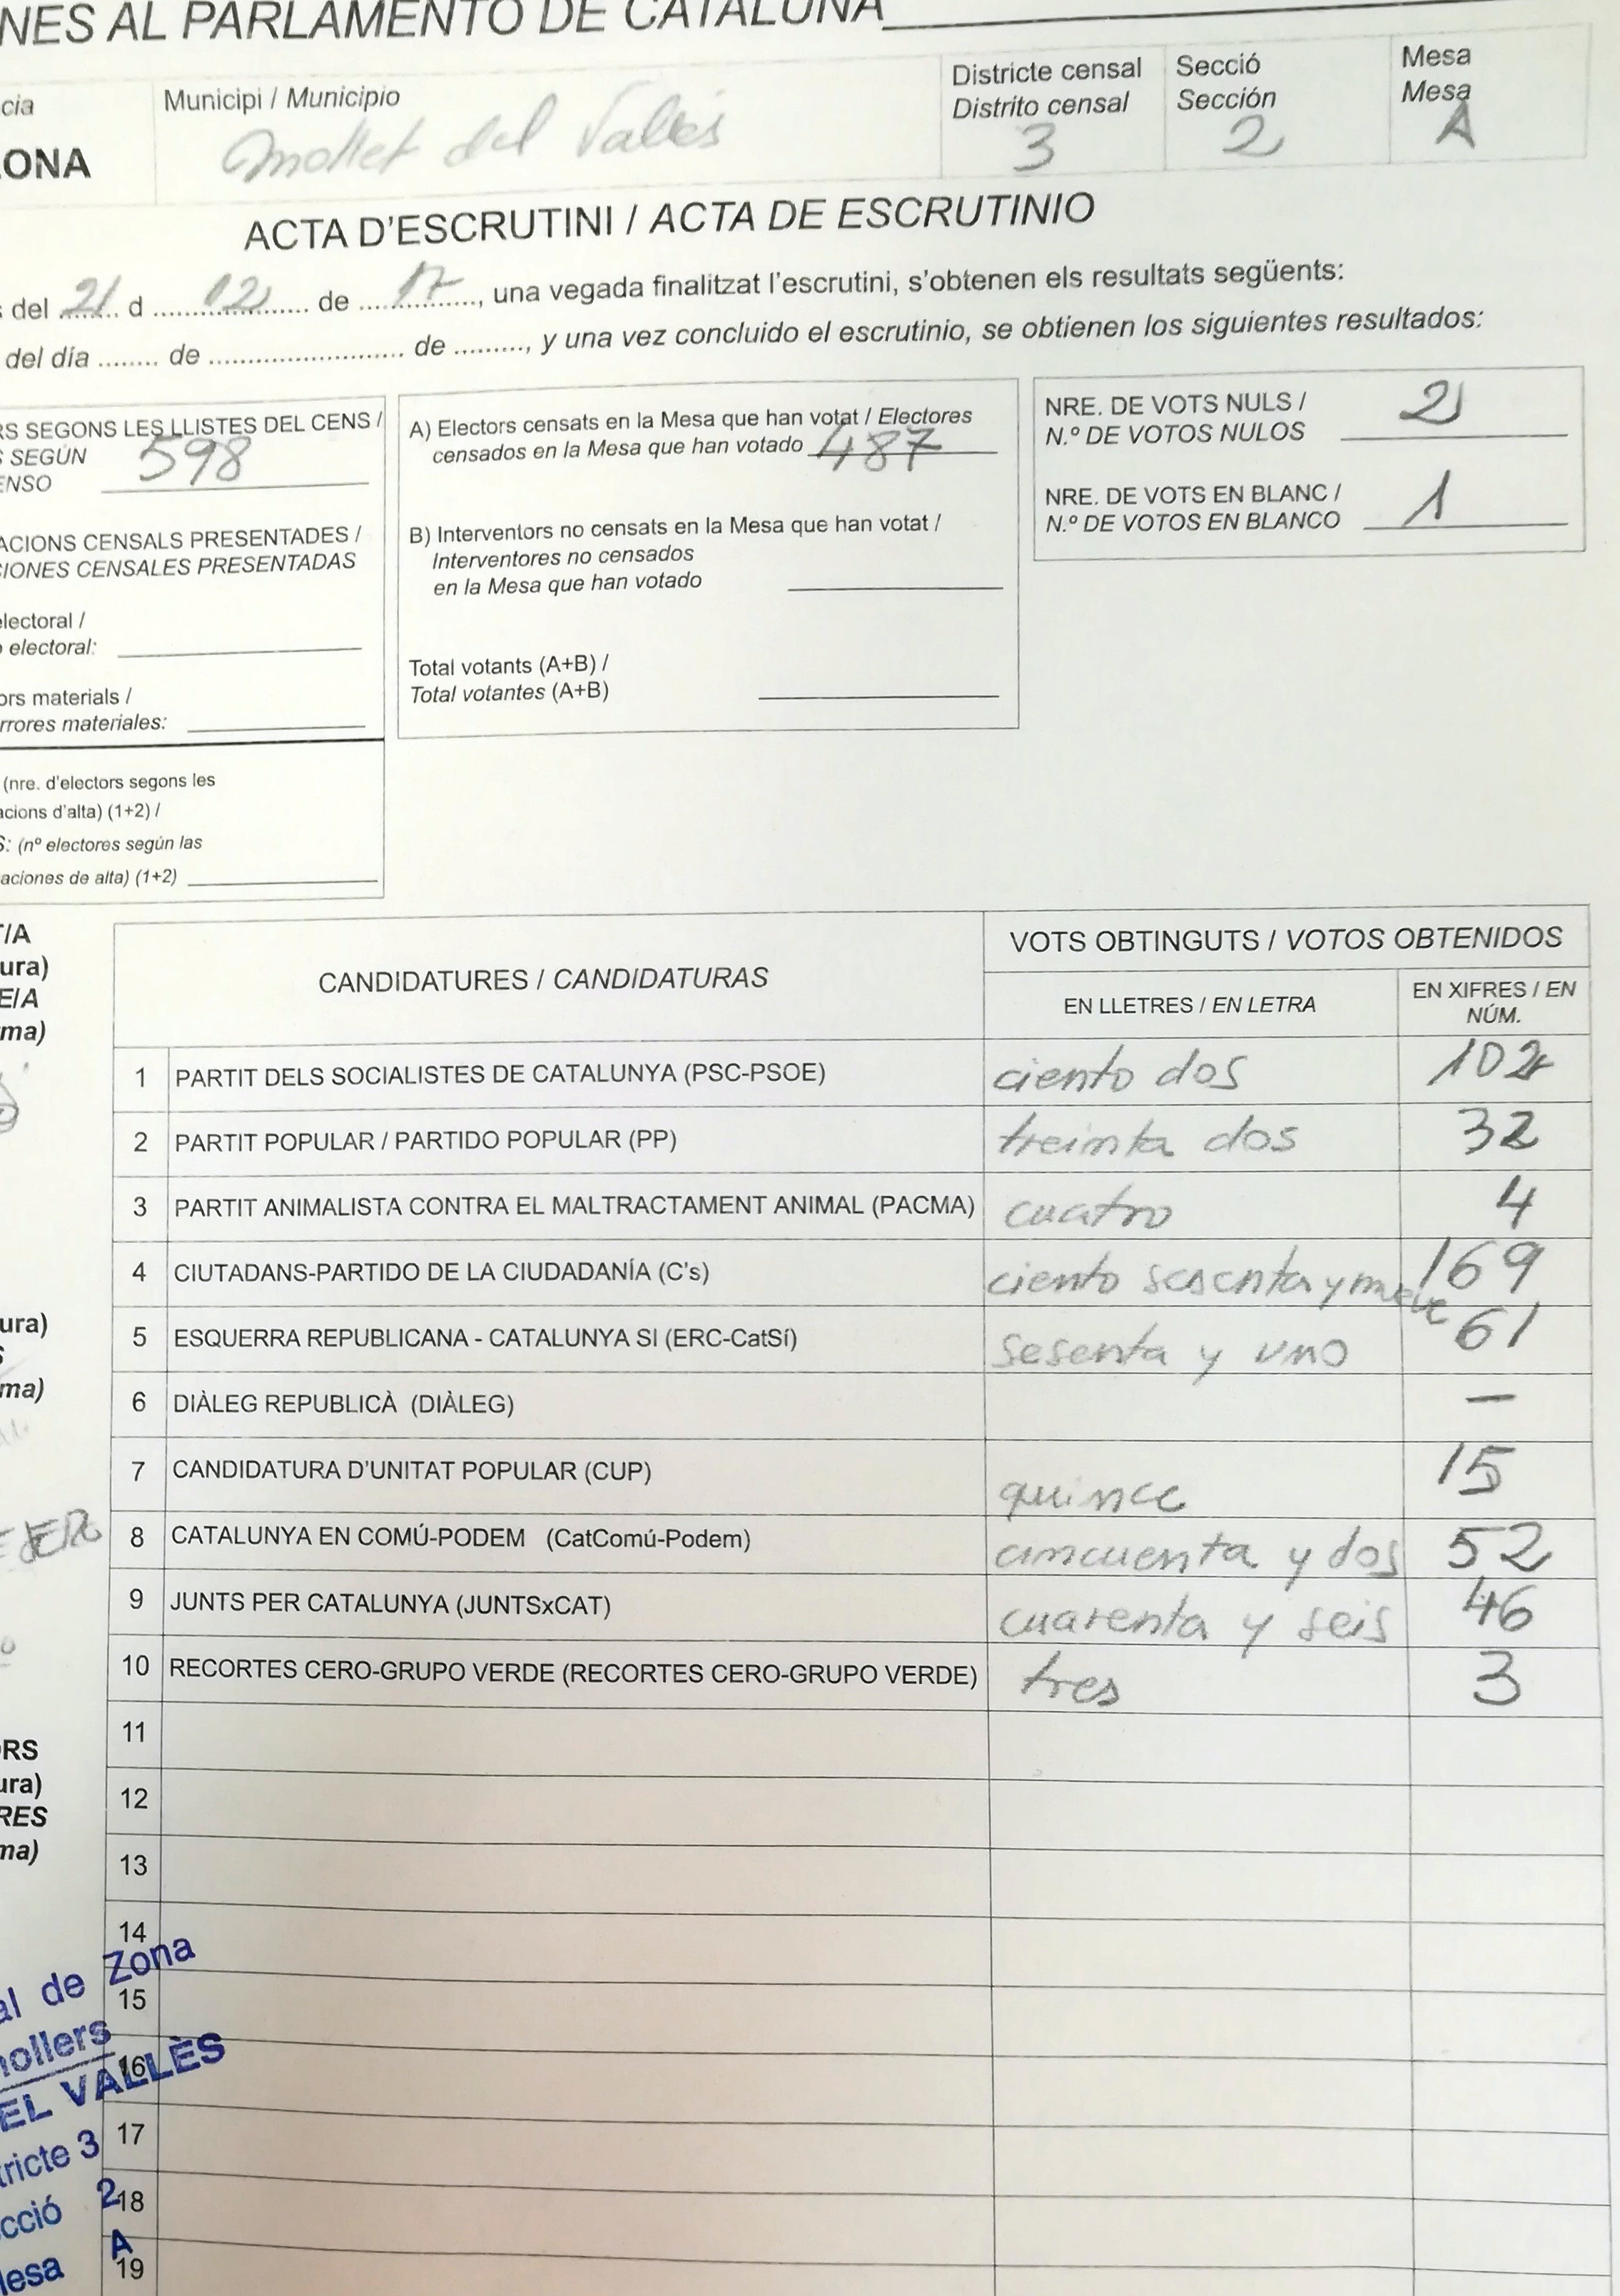 NES AL PARLAMENTO DE CATALUÑA
cia
Municipi / Municipio
Districte censal
Distrito censal
Secció
Sección
Mesa
Mesa
ONA
Mollet del Vallés
3
2
A
ACTA D'ESCRUTINI / ACTA DE ESCRUTINIO
del 21 d 12 de 17, una vegada finalitzat l'escrutini, s'obtenen els resultats següents:
del día ........ de ........................ de ........., y una vez concluido el escrutinio, se obtienen los siguientes resultados:
RS SEGONS LES LLISTES DEL CENS /
S SEGÚN
ENSO 598
ACIONS CENSALS PRESENTADES /
IONES CENSALES PRESENTADAS
electoral /
o electoral:
ors materials /
rrores materiales:
(nre. d'electors segons les
acions d'alta) (1+2) /
S: (nº electores según las
aciones de alta) (1+2)
A) Electors censats en la Mesa que han votat / Electores
censados en la Mesa que han votado 487
B) Interventors no censats en la Mesa que han votat /
Interventores no censados
en la Mesa que han votado
Total votants (A+B) /
Total votantes (A+B)
NRE. DE VOTS NULS /
N.º DE VOTOS NULOS 2
NRE. DE VOTS EN BLANC /
N.º DE VOTOS EN BLANCO 1
T/A
ura)
E/A
ma)
ura)
S
ma)
RS
ura)
RES
ma)
CANDIDATURES / CANDIDATURAS
VOTS OBTINGUTS / VOTOS OBTENIDOS
EN LLETRES / EN LETRA
EN XIFRES / EN
NÚM.
1 PARTIT DELS SOCIALISTES DE CATALUNYA (PSC-PSOE) ciento dos 102
2 PARTIT POPULAR / PARTIDO POPULAR (PP) treinta dos 32
3 PARTIT ANIMALISTA CONTRA EL MALTRACTAMENT ANIMAL (PACMA) cuatro 4
4 CIUTADANS-PARTIDO DE LA CIUDADANÍA (C's) ciento sesenta y nueve 169
5 ESQUERRA REPUBLICANA - CATALUNYA SI (ERC-CatSí) sesenta y uno 61
6 DIÀLEG REPUBLICÀ (DIÀLEG) —
7 CANDIDATURA D'UNITAT POPULAR (CUP) quince 15
8 CATALUNYA EN COMÚ-PODEM (CatComú-Podem) cincuenta y dos 52
9 JUNTS PER CATALUNYA (JUNTSxCAT) cuarenta y seis 46
10 RECORTES CERO-GRUPO VERDE (RECORTES CERO-GRUPO VERDE) tres 3
11
12
13
14
15
16
17
18
19
al de Zona
nollers
EL VALLÈS
tricte 3
cció 2
lesa A